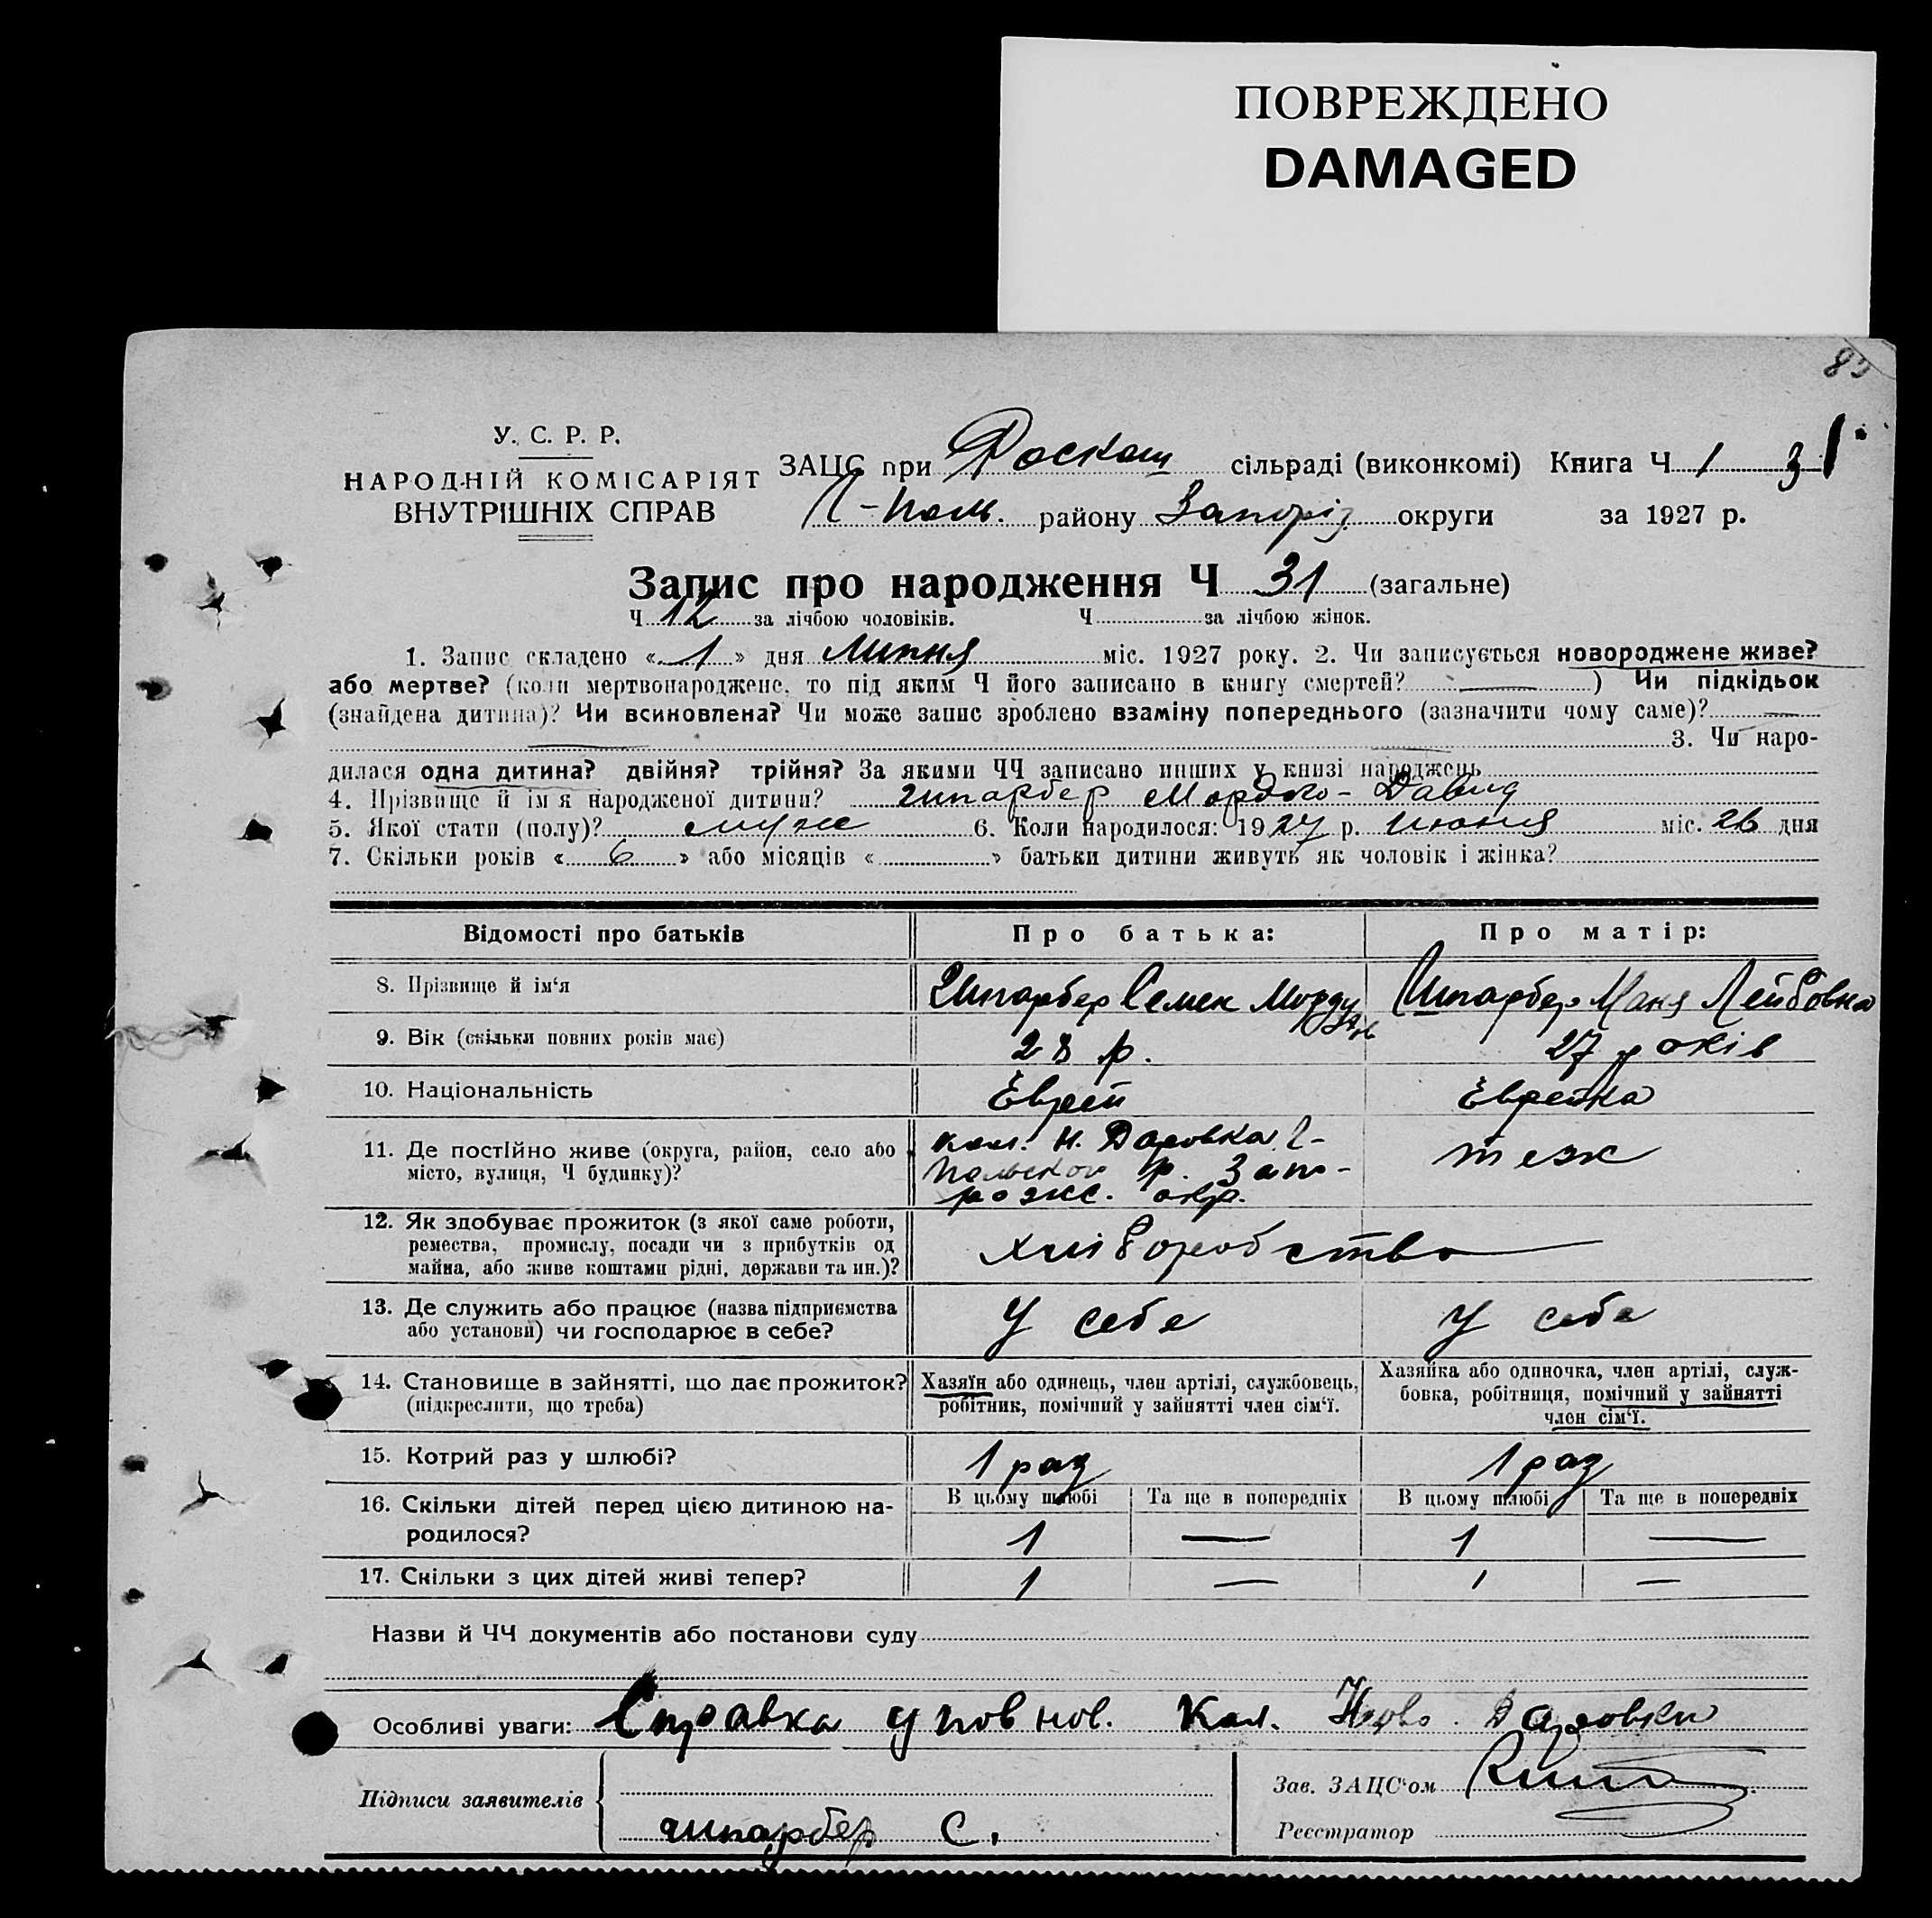 ПОВРЕЖДЕНО
DAMAGED
У. С. Р. Р.
НАРОДНІЙ КОМІСАРІЯТ
ВНУТРІШНІХ СПРАВ
ЗАЦС при Роскош сільраді (виконкомі) Книга Ч. 1
-Поль. району Запоріз. округи за 1927 р.
Запис про народження Ч 31 (загальне)
Ч. 12 за лічбою чоловіків. Ч. за лічбою жінок.
1. Запис складено «1» дня Липня міс. 1927 року. 2. Чи записується новороджене живе?
або мертве? (коли мертвонароджене, то під яким Ч його записано в книгу смертей? —) Чи підкідьок
(знайдена дитина)? Чи всиновлена? Чи може запис зроблено взаміну попереднього (зазначити чому саме)? —
3. Чи наро-
дилася одна дитина? двійня? трійня? За якими ЧЧ записано инших у книзі народжень
4. Прізвище й ім'я народженої дитини? Шпарбер Мордко-Давид
5. Якої стати (полу)? муж 6. Коли народилося: 1927 р. Июня міс. 26 дня
7. Скільки років «6» або місяців « » батьки дитини живуть як чоловік і жінка?
Відомості про батьків Про батька: Про матір:
8. Прізвище й ім'я Шпарбер Семен Мордухов Шпарбер Маня Лейбовна
9. Вік (скільки повних років має) 28 р. 27 років
10. Національність Еврей Еврейка
11. Де постійно живе (округа, район, село або
місто, вулиця, Ч будинку)?
кол. Н. Даровка
польского р. Запо-
рожс. окр.
теж
12. Як здобуває прожиток (з якої саме роботи,
ремества, промислу, посади чи з прибутків од
майна, або живе коштами рідні, держави та ин.)?
хліборобство
13. Де служить або працює (назва підприємства
або установи) чи господарює в себе?
У себе У себе
14. Становище в зайнятті, що дає прожиток?
(підкреслити, що треба)
Хазяїн або одинець, член артілі, службовець,
робітник, помічний у зайнятті член сім'ї.
Хазяйка або одиночка, член артілі, служ-
бовка, робітниця, помічний у зайнятті
член сім'ї.
15. Котрий раз у шлюбі? 1 раз 1 раз
16. Скільки дітей перед цією дитиною на-
родилося?
В цьому шлюбі Та ще в попередніх В цьому шлюбі Та ще в попередніх
1 — 1 —
17. Скільки з цих дітей живі тепер? 1 — 1 —
Назви й ЧЧ документів або постанови суду
Особливі уваги: Справка уповнов. Кол. Ново. Даровки
Підписи заявителів
Шпарбер С.
Зав. ЗАЦС'ом
Реєстратор